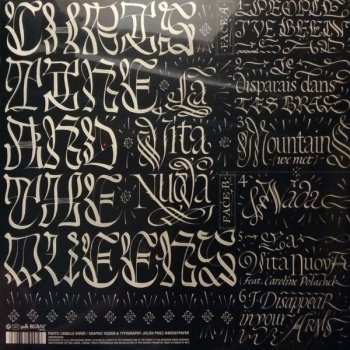 CHRIS
TINE
AND
THE
QUEENS
La
Vita
Nuova
FACE A
1 PEOPLE
I'VE BEEN
Je
Disparais dans
TES BRAS
3 Mountains
(we met)
FACE B
4 Nada
5 La
Vita Nuova
Feat. Caroline Polachek
6 I Disappear
in your
Arms